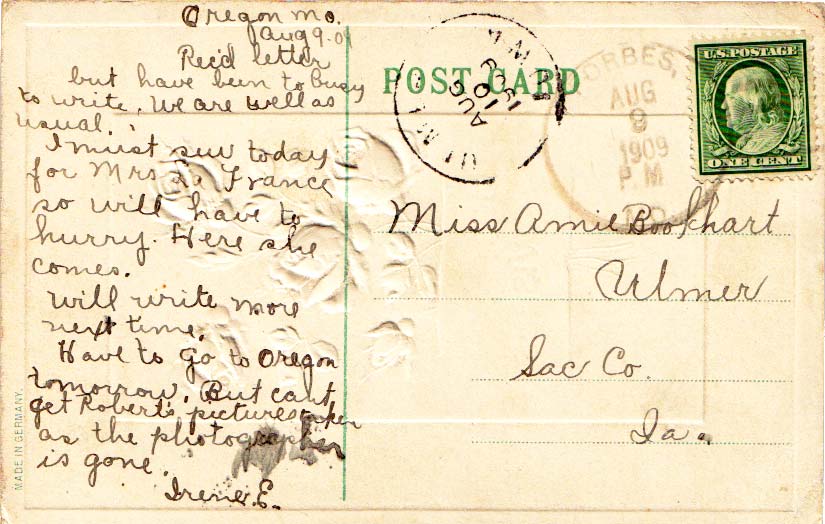 Oregon Mo.
Aug 9. 09
Rec'd letter
but have been to Busy
to write. We are well as
usual.
I must sew today
for Mrs La France
so will have to
hurry. Here she
comes.
Will write more
next time.
Have to go to Oregon
tomorrow. But cant
get Robert's pictures taken
as the photographer
is gone.
Irene. E.
MADE IN GERMANY.
POST CARD
ULMER
AUG
1909
FORBES,
AUG
9
1909
P.M
MO.
U.S. POSTAGE
ONE CENT
Miss Amie Bookhart
Ulmer
Sac Co.
Ia.